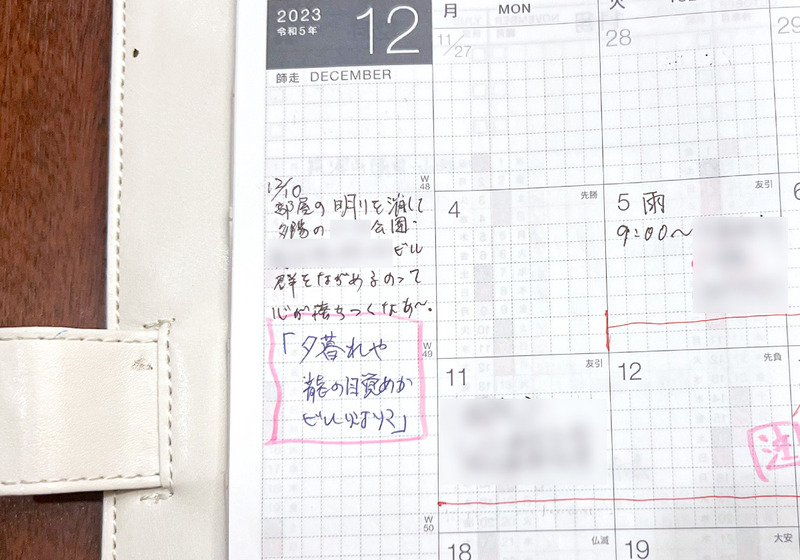 2023
令和5年
12
師走 DECEMBER
月 MON
火
11/27
28
29
W
48
12/10
部屋の明りを消して
夕陽の 公園・
ビル
群をながめるのって
心が落ちつくなあ〜。
「夕暮れや
龍の目覚めか
ビル
W
49
4
先勝
5 雨
友引
9:00〜
6
11
友引
12
先負
注
W
50
18
仏滅
19
大安